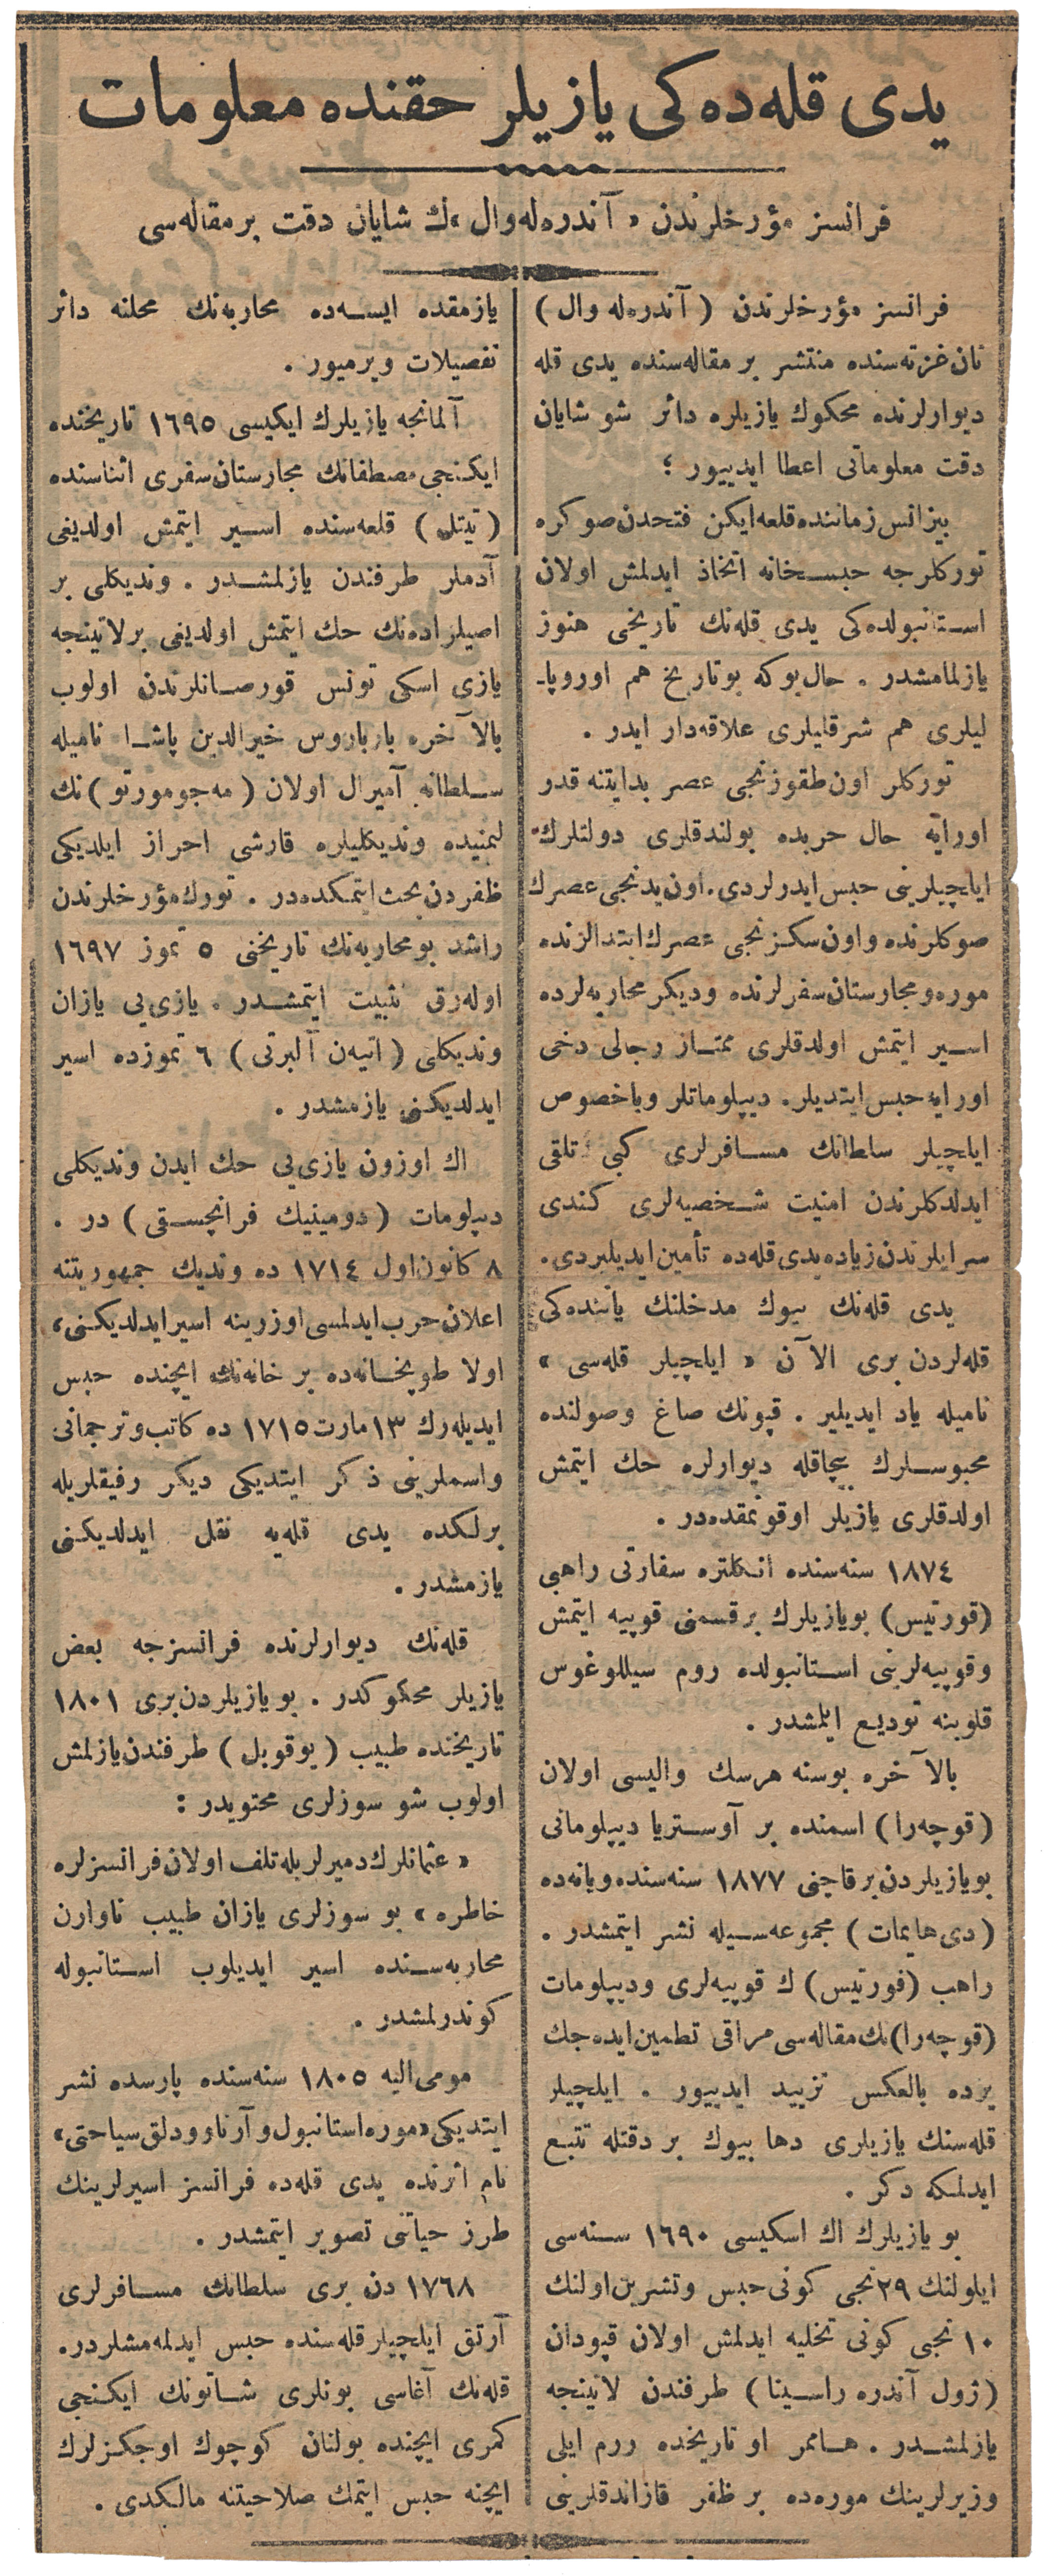 يدى قله‌ده كى يازيلر حقنده معلومات
فرانسز مؤرخلرندن « آندره‌له‌وال »ك شايان دقت بر مقاله‌سى
فرانسز مؤرخلرندن ( آندره‌له وال )
تان غزته‌سنده منتشر بر مقاله‌سنده يدى قله
ديوارلرنده محكوك يازيلره دائر شو شايان
دقت معلوماتى اعطا ايدييور ؛
بيزانس زماننده قلعه ايكن فتحدن صوكره
توركلرجه حبسخانه اتخاذ ايدلمش اولان
استانبولده‌كى يدى قله‌نك تاريخى هنوز
يازلمامشدر . حال بوكه بو تاريخ هم اوروپا-
ليلرى هم شرقليلرى علاقه‌دار ايدر .
توركلر اون طقوزنجى عصر بدايتنه قدر
اورايه حال حربده بولندقلرى دولتلرك
ايلچيلرينى حبس ايدرلردى . اون يدنجى عصرك
صوكلرنده و اون سكزنجى عصرك ابتدالرنده
موره و مجارستان سفرلرنده و ديكر محاربه‌لرده
اسير ايتمش اولدقلرى ممتاز رجالى دخى
اورايه حبس ايتديلر . ديپلوماتلر و باخصوص
ايلچيلر سلطانك مسافرلرى كبى تلقى
ايدلدكلرندن امنيت شخصيه‌لرى كندى
سرايلرندن زياده يدى قله‌ده تأمين ايديليردى .
يدى قله‌نك بيوك مدخلنك ياننده‌كى
قله‌لردن برى الآن « ايلچيلر قله‌سى »
ناميله ياد ايديلير . قپونك صاغ وصولنده
محبوسلرك بيچاقله ديوارلره حك ايتمش
اولدقلرى يازيلر اوقونمقده‌در .
١٨٧٤ سنه‌سنده انكلتره سفارتى راهبى
(قورتيس) بو يازيلرك بر قسمنى قوپيه ايتمش
و قوپيه‌لرينى استانبولده روم سيللوغوس
قلوبنه توديع ايلمشدر .
بالآخره بوسنه هرسك واليسى اولان
(قوچه‌را) اسمنده بر آوستريا ديپلوماتى
بو يازيلردن برقاچنى ١٨٧٧ سنه‌سنده ويانه‌ده
(دى هايمات) مجموعه‌سيله نشر ايتمشدر .
راهب (قورتيس) ك قوپيه‌لرى وديپلومات
(قوچه‌را)نك مقاله‌سى مراقى تطمين ايده‌جك
يرده بالعكس تزييد ايدييور . ايلچيلر
قله‌سنك يازيلرى دها بيوك بر دقتله تتبع
ايدلمكه دكر .
بو يازيلرك اك اسكيسى ١٦٩٠ سنه‌سى
ايلولنك ٢٩نجى كونى حبس وتشرين اولنك
١٠ نجى كونى تخليه ايدلمش اولان قپودان
(ژول آندره راسينا) طرفندن لاتينجه
يازلمشدر . هاممر او تاريخده روم ايلى
وزيرلرينك موره‌ده بر ظفر قازاندقلرينى
يازمقده ايسه‌ده محاربه‌نك محلنه دائر
تفصيلات ويرميور .
آلمانجه يازيلرك ايكيسى ١٦٩٥ تاريخنده
ايكنجى مصطفانك مجارستان سفرى اثناسنده
(تيتل) قلعه‌سنده اسير ايتمش اولديغى
آدملر طرفندن يازلمشدر . ونديكلى بر
اصيلزاده‌نك حك ايتمش اولديغى بر لاتينجه
يازى اسكى تونس قورصانلرندن اولوب
بالآخره بارباروس خيرالدين پاشا ناميله
سلطانه آميرال اولان ( مه‌جومورتو ) نك
ليمنيده ونديكليلره قارشى احراز ايلديكى
ظفردن بحث ايتمكده‌در . تورك مؤرخلرندن
راشد بو محاربه‌نك تاريخنى ٥ تموز ١٦٩٧
اوله‌رق تثبيت ايتمشدر . يازى‌يى يازان
ونديكلى (اتيه‌ن آلبرتى) ٦ تموزده اسير
ايدلديكنى يازمشدر .
اك اوزون يازى‌يى حك ايدن ونديكلى
ديپلومات (دومينيك فرانچسقى) در .
٨ كانون اول ١٧١٤ ده ونديك جمهوريتنه
اعلان حرب ايدلمسى اوزرينه اسير ايدلديكنى،
اولا طوپخانه‌ده بر خانه‌نك ايچنده حبس
ايديله‌رك ١٣ مارت ١٧١٥ ده كاتب و ترجمانى
واسملرينى ذكر ايتديكى ديكر رفيقلريله
برلكده يدى قله‌يه نقل ايدلديكنى
يازمشدر .
قله‌نك ديوارلرنده فرانسزجه بعض
يازيلر محكوكدر . بو يازيلردن برى ١٨٠١
تاريخنده طبيب (پوقويل) طرفندن يازلمش
اولوب شو سوزلرى محتويدر :
« عثمانلرك دميرلريله تلف اولان فرانسزلره
خاطره » بو سوزلرى يازان طبيب ناوارن
محاربه‌سنده اسير ايديلوب استانبوله
كوندرلمشدر .
مومى اليه ١٨٠٥ سنه‌سنده پارسده نشر
ايتديكى «موره استانبول و آرناوودلق سياحتى»
نام اثرنده يدى قله‌ده فرانسز اسيرلرينك
طرز حياتنى تصوير ايتمشدر .
١٧٦٨ دن برى سلطانك مسافرلرى
آرتق ايلچيلر قله‌سنده حبس ايدلمه‌مشلردر .
قله‌نك آغاسى بونلرى شاتونك ايكنجى
كمرى ايچنده بولنان كوچوك اوجكزلرك
ايچنه حبس ايتمك صلاحيتنه مالكدى .